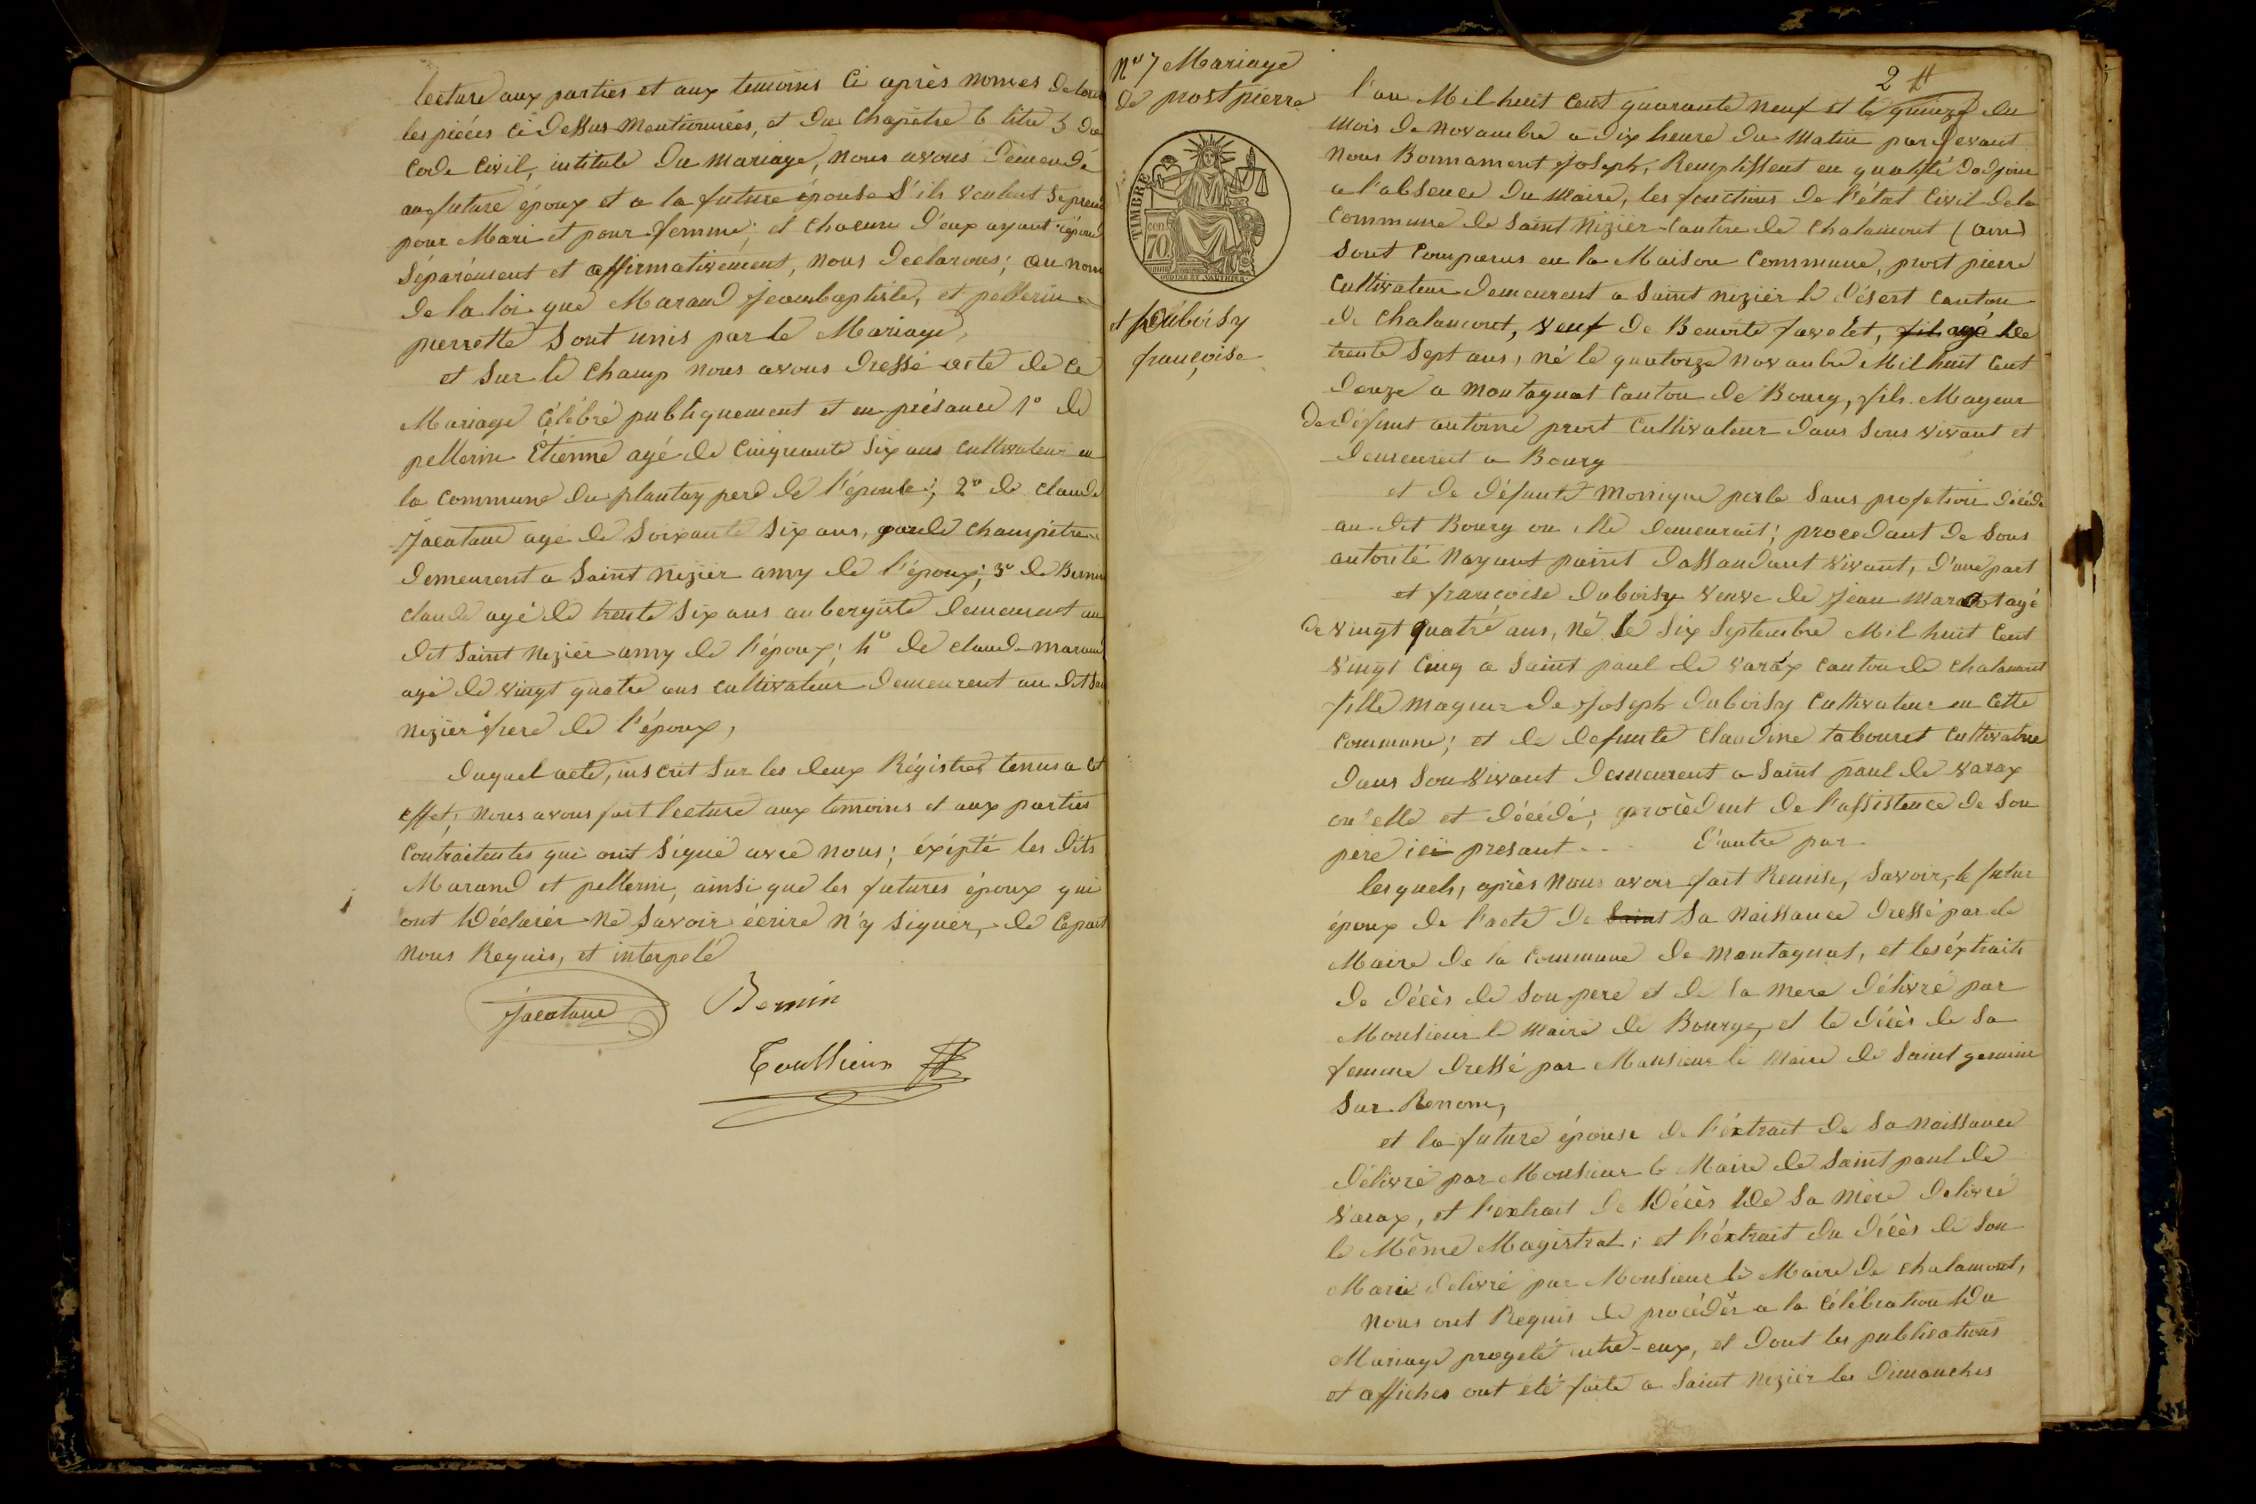 lecture aux parties et aux temoins Ci après només de toutes
les piéces ci Dessus Mentionnées, et du Chapitre 6 titre 5 du
Code Civil, intitulé Du Mariage, nous avons Demendé
au future époux et a la future épouse S'ils veulent Se prendre
pour Mari et pour femme; et Chacun D'eux ayant répondu
Séparément et affirmativement, nous Declarons; au nom
De la loi que Marand Jeanbaptiste, et pellerin
pierrette Sont unis par le Mariage,
et Sur le Champ nous avons Dressé acte de ce
Mariage Célébré publiquement et en présance 1° de
pellerin Étienne agé de Cinquante Six ans Cultivateur en
la Commune du plantay pere de l'épouse; 2° de claude
Jacatane agé de Soixante Six ans, garde Champétre
Demeurent a Saint Nizier amy de l'époux; 3° de Bernin
claude agé de trente Six ans aubergiste Demeurent au
Dit Saint Nizier amy de l'époux; 4° de claude Marand
agé de vingt quatre ans cultivateur Demeurent au Dit Saint
Nizier frere de l'époux,
Duquel acte, inscrit Sur les Deux Régistres tenus a Cet
effet; Nous avons fait lecture aux temoins et aux parties
Contraitentes qui ont Signé avec nous; éxépté les Dits
Marand et pellerin, ainsi que les futures époux qui
ont Déclarér ne Savoir écrire n'y Signer, de Ce part
nous Requis, et interpelé
Jacatane Bernin
N° 7 Mariage
de prost pierre
TIMBRE
70
et Duboisy
françoise
2
l'an Mil huit Cent quarante Neuf et le quinze du
Mois de Novambre a Dix heure du Matin par Devant
Nous Bonnament Joseph, Remplissent en qualité Dadjoin
a l'absence Du Maire, les fonctions De l'état Civil De la
Commune de Saint Nizier Canton de Chalamont (ain)
Sont Comparus en la Maison Commune, prost pierre
Cultivateur Demeurent a Saint Nizier le Désert Canton
de Chalamont, veuf de Benoite favelet, agé De
trente Sept ans, né le quatorze Novambre Mil huit Cent
Douze a Montagnat Canton de Bourg, fils Mayeur
De Défunt antoine prost Cultivateur Dans Sons vivant et
Demeurent a Bourg
et de Défunte Monique perle Sans profetion Décédé
au Dit Bourg ou elle Demeurait; procedant de Sons
autorité Nayant point Dassandant vivant, D'une part
et françoise Duboisy veuve de Jean Marant agé
de vingt quatre ans, né le Six Septembre Mil huit Cent
vingt Cinq a Saint paul de varax Canton de Chalamont
fille mayeur de Joseph Duboisy Cultivateur en Cette
Commune; et de Defunte Claudine tabouret Cultivatrice
Dans Son vivant Demeurent a Saint paul de varax
ou elle et Décédé; procèdent de l'assistence de Son
pere ici presant . . . D'autre par.
lesquels, après Nous avoir fait Remise, Savoir, le futur
époux de l'acte De Saint Sa Naissance Dressé par le
Maire de la Commune De Montagnat, et les éxtraits
De Décès de Son pere et De la Mere Délivré par
Monsieur le Maire de Bourg, et le Décès de Sa
femme Dressé par Monsieur le Maire de Saint germine
Sur Renom,
et la future épouse de l'éxtrait de Sa Naissance
Délivré par Monsieur le Maire de Saint paul de
varax, et l'extrait de Décès De Sa Mère Délivré
le Même Magistrat; et l'éxtrait du Décès de Son
Marie Délivré par Monsieur le Maire de Chalamont,
Nous ont Requis de procédér a la Célébration Du
Mariage progeté entre-eux, et Dont les publications
et affiches ont été faite a Saint Nizier les Dimanches